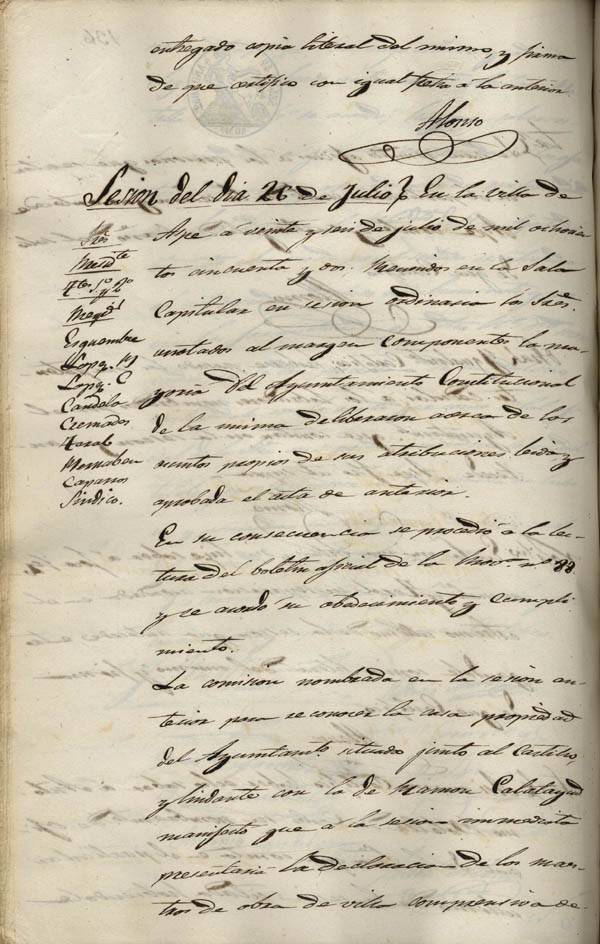 entregado copia literal del mismo, y firma
de que certifico con igual fecha a la anterior.
Alonso
Sesion del dia 26 de Julio} En la villa de
Aspe a veinte y seis de julio de mil ochocien
tos cincuenta y dos. Reunidos en la Sala
Capitular en sesion ordinaria los Sres.
anotados al margen componentes la ma-
yoria del Ayuntamiento Constitucional
de la misma deliberaron acerca de los
asuntos propios de sus atribuciones leida y
aprobada el acta de anterior.
Sres
Presidte
Esquembre
Lopz. M
Lopz. C
Candela
Cremades
Zaral
Mornabeu
Caparros
Sindico.
En su consecuencia se procedió a la lec-
tura del boletin oficial de la Prova. nº 88
y se acordó su obedecimiento y cumpli-
miento.
La comision nombrada en la sesion an-
terior para reconocer la casa propiedad
del Ayuntamto. situada junto al Castillo,
y lindante con la de Ramon Calatayud
manifestó que a la sesion inmediata
presentaria la declaracion de los maes-
tros de obra de villa comprensiva de-